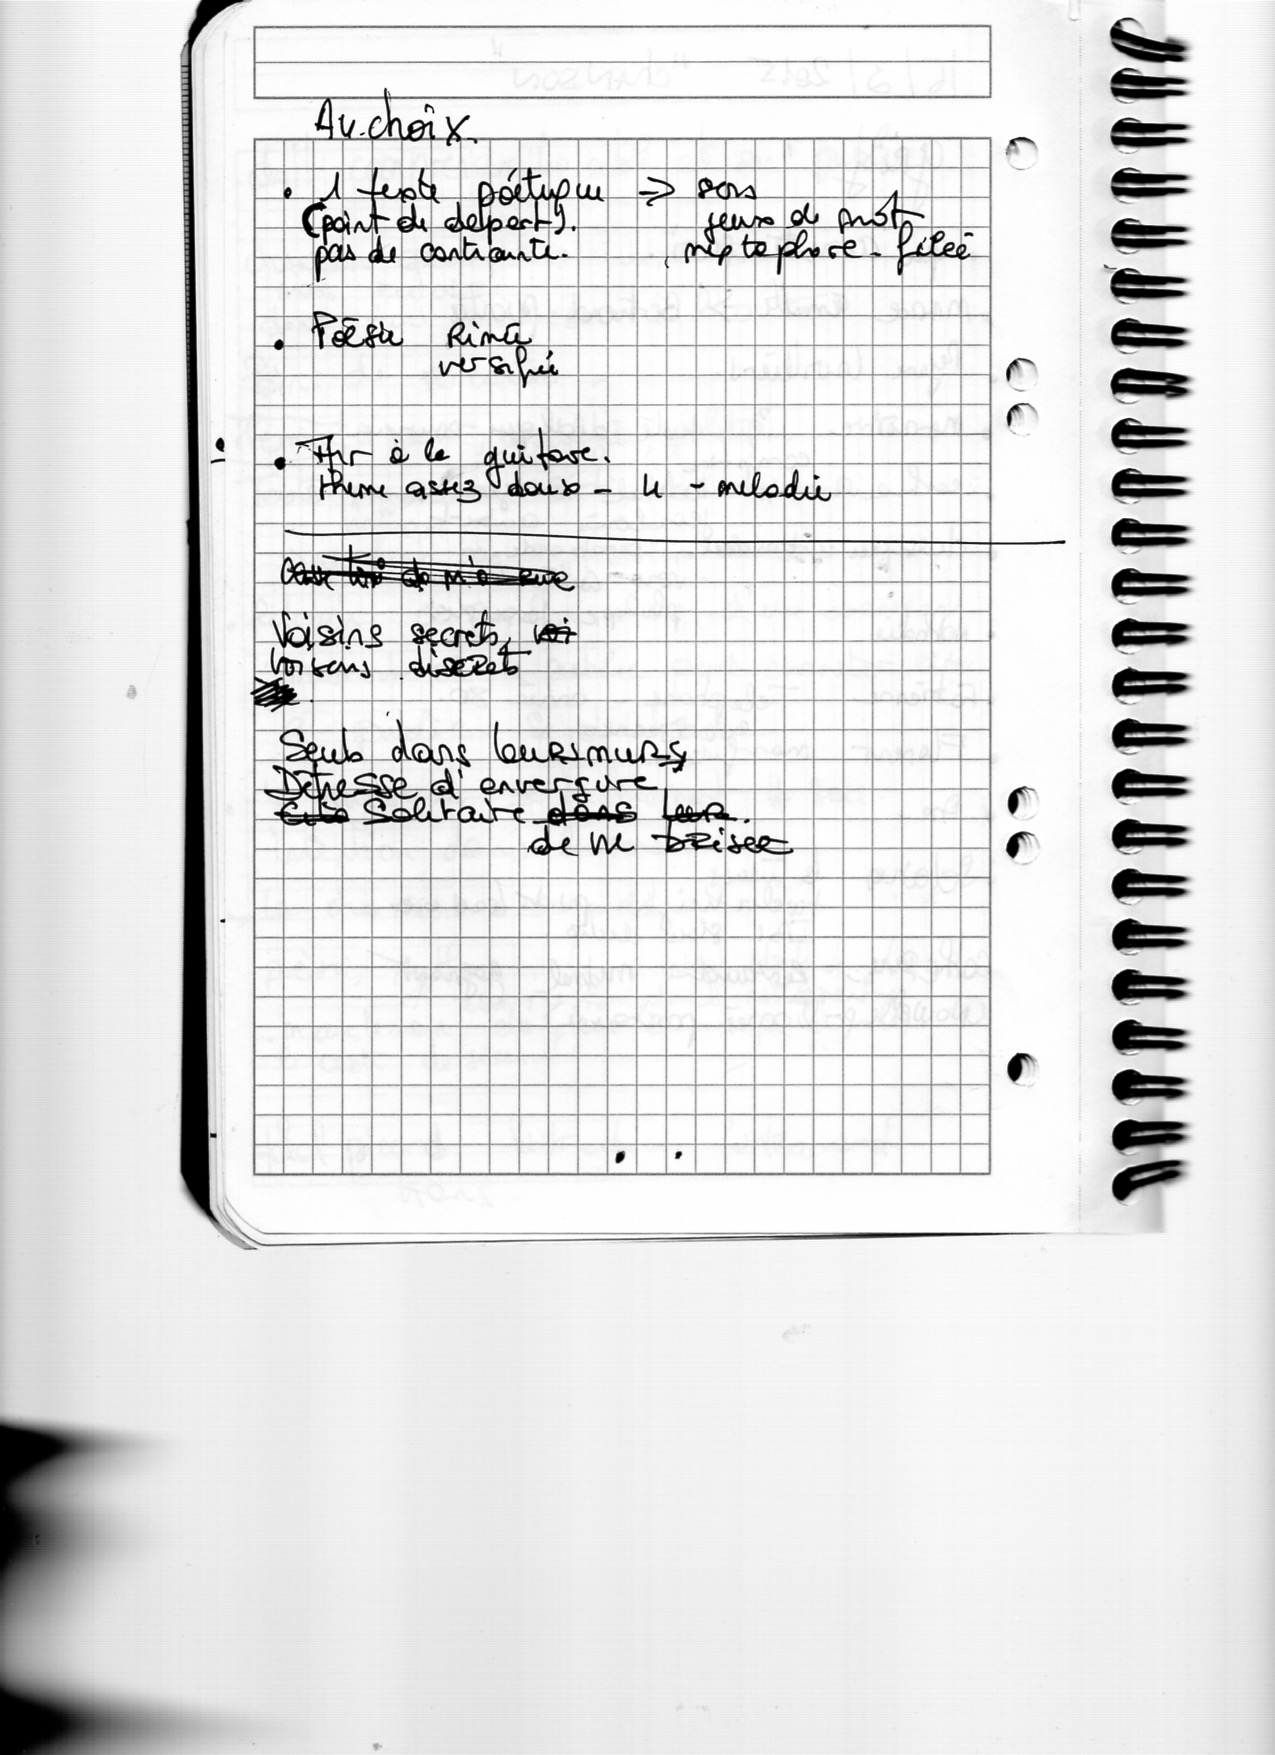 Au choix.
• 1 texte poétique => sons
(point de départ). jeux de mots
pas de contrainte. métaphore - filée
• Poésie Rimée
versifiée
• Air à la guitare.
thème assez doux - 4 - mélodie
Voisins secrets, voi
voisins discrets
Seuls dans leurs murs,
Détresse d'envergure
Solitaire dans leur.
de vie brisée